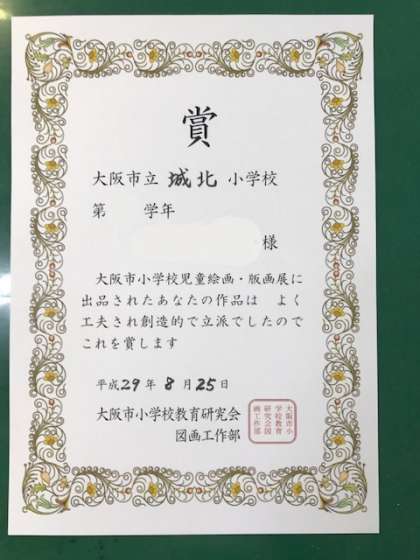 賞
大阪市立 城北 小学校
第 学年
様
大阪市小学校児童絵画・版画展に
出品されたあなたの作品は よく
工夫され創造的で立派でしたので
これを賞します
平成29年 8月 25日
大阪市小学校教育研究会
図画工作部
大阪市小
学校教育
研究会図
画工作部